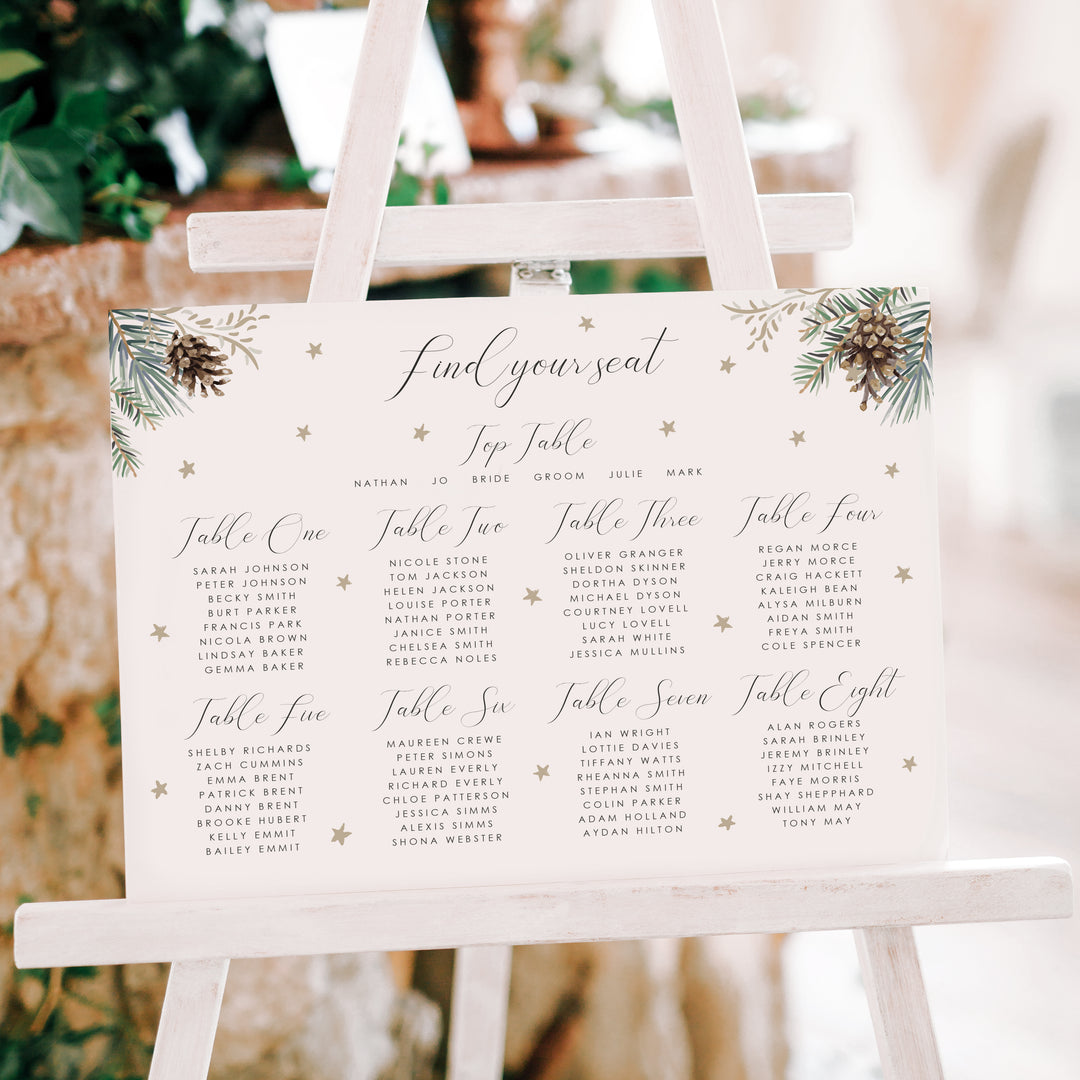 Find your seat
Top Table
NATHAN JO BRIDE GROOM JULIE MARK
Table One
SARAH JOHNSON
PETER JOHNSON
BECKY SMITH
BURT PARKER
FRANCIS PARK
NICOLA BROWN
LINDSAY BAKER
GEMMA BAKER
Table Two
NICOLE STONE
TOM JACKSON
HELEN JACKSON
LOUISE PORTER
NATHAN PORTER
JANICE SMITH
CHELSEA SMITH
REBECCA NOLES
Table Three
OLIVER GRANGER
SHELDON SKINNER
DORTHA DYSON
MICHAEL DYSON
COURTNEY LOVELL
LUCY LOVELL
SARAH WHITE
JESSICA MULLINS
Table Four
REGAN MORCE
JERRY MORCE
CRAIG HACKETT
KALEIGH BEAN
ALYSA MILBURN
AIDAN SMITH
FREYA SMITH
COLE SPENCER
Table Five
SHELBY RICHARDS
ZACH CUMMINS
EMMA BRENT
PATRICK BRENT
DANNY BRENT
BROOKE HUBERT
KELLY EMMIT
BAILEY EMMIT
Table Six
MAUREEN CREWE
PETER SIMONS
LAUREN EVERLY
RICHARD EVERLY
CHLOE PATTERSON
JESSICA SIMMS
ALEXIS SIMMS
SHONA WEBSTER
Table Seven
IAN WRIGHT
LOTTIE DAVIES
TIFFANY WATTS
RHEANNA SMITH
STEPHAN SMITH
COLIN PARKER
ADAM HOLLAND
AYDAN HILTON
Table Eight
ALAN ROGERS
SARAH BRINLEY
JEREMY BRINLEY
IZZY MITCHELL
FAYE MORRIS
SHAY SHEPPHARD
WILLIAM MAY
TONY MAY